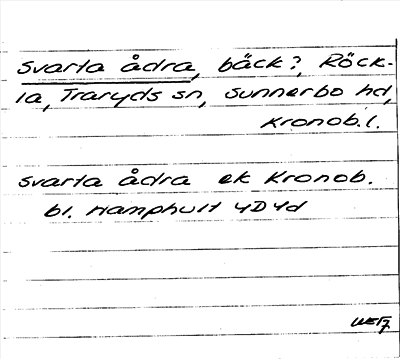 Svarta ådra, bäck?, Röck-
la, Traryds sn, Sunnerbo hd,
Kronob. l.
svarta ådra ek Kronob.
bl. Hamphult 4D4d